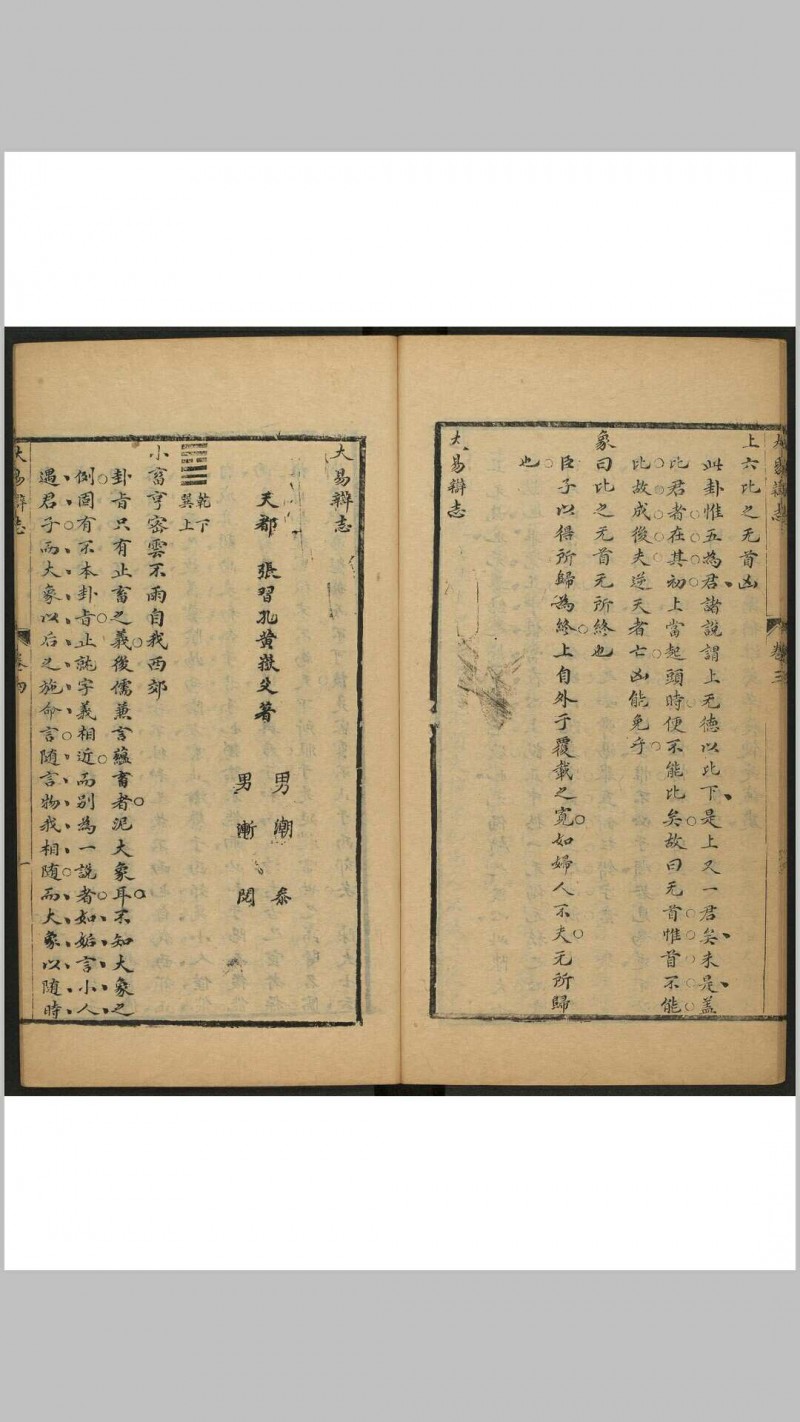 上六比之无首凶
此卦惟五為君諸說謂上无德以比下是上又一君矣未是蓋
比君者在其初上當起頭時便不能比矣故曰无首惟首不能
比故成後夫逆天者亡凶能免乎
象曰比之无首无所終也
臣子以得所歸為終上自外于覆載之寬如婦人不夫无所歸
也
大易辯志
大易辯志
卷三
大易辯志
天都 張習孔黄嶽父著
男潮 泰
男漸 閱
乾下
巽上
小畜亨密雲不雨自我西郊
卦旨只有止畜之義後儒兼言蘊畜者泥大象耳不知大象之
例固有不本卦旨止就字義相近而別為一說者如姤言小人
遇君子而大象以后之施命言隨言物我相隨而大象以隨時
大易辯志
卷四
一